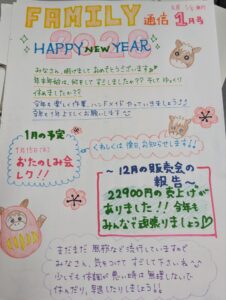 FAMILY 通信 1月号
2026
HAPPY NEW YEAR
みなさん、明けましておめでとうございます
年末年始は、何をして すごしましたか?? そして ゆっくり
休めましたか??
今年も楽しく作業、ハンドメイド やっていきましょう!!
今年も1年よろしくお願いします
1月の予定
1月15日(木)
おたのしみ会
レク!!
くわしくは 後日、お知らせします!!
~12月の販売会の
報告~
22900円の売上げが
ありました!! 今年も
みんなで頑張りましょう♡
まだまだ 風邪など流行していますので
みなさん、気をつけて すごして下さいね
少しでも体調が悪い時は無理しないで
休んだり、早退したりしましょう!!